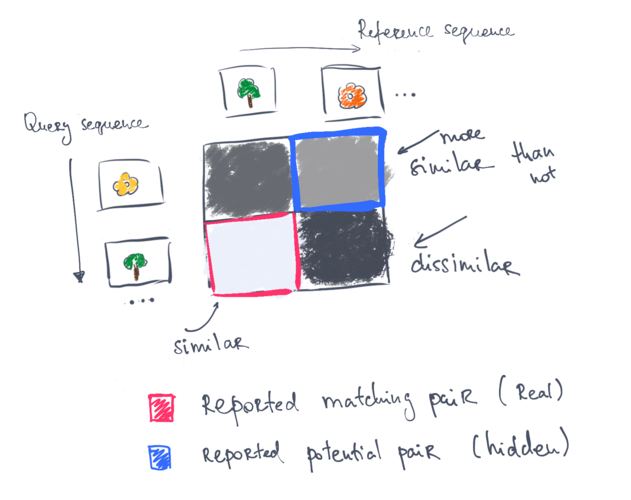 Reference sequence
...
Query sequence
more
similar than
not
dissimilar
...
similar
Reported matching pair (Real)
Reported potential pair (hidden)